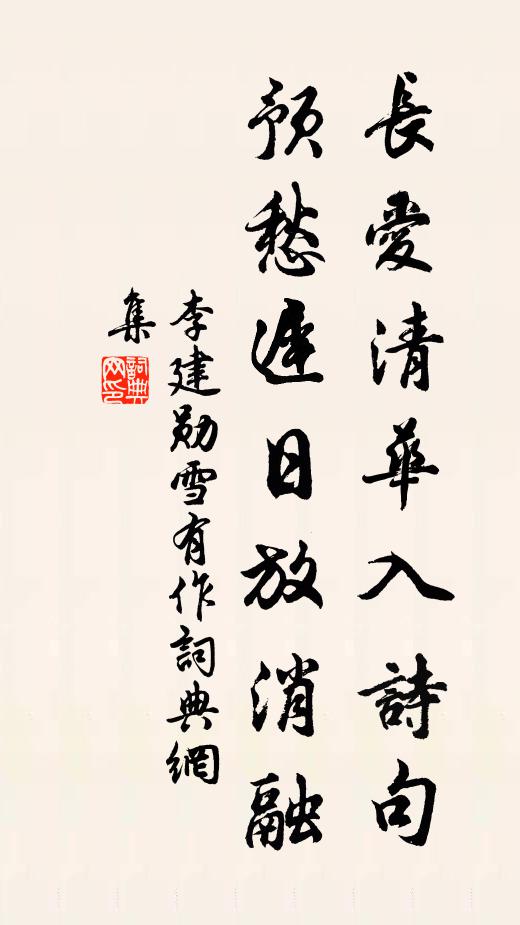 長愛清華入詩句
預愁遲日放消融
李建勛雪有作詞典網
集
詞典
网印